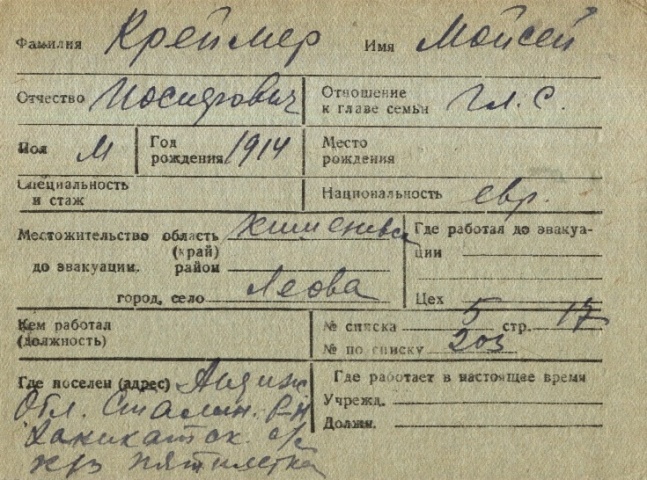 Фамилия Креймер Имя Мойсей
Отчество Иосифович Отношение к главе семьи Гл. С.
Пол М Год рождения 1914 Место рождения
Специальность и стаж Национальность евр.
Местожительство область Кишенева Где работал до эвакуа-
(край) ции
до эвакуации. район
город, село Леова Цех
Кем работал № списка 5 стр. 17
(должность) № по списку 203
Где поселен (адрес) Андиж Где работает в настоящее время
Обл. Сталин. р-н Учрежд.
с/с Должн.
к-з пятилетка